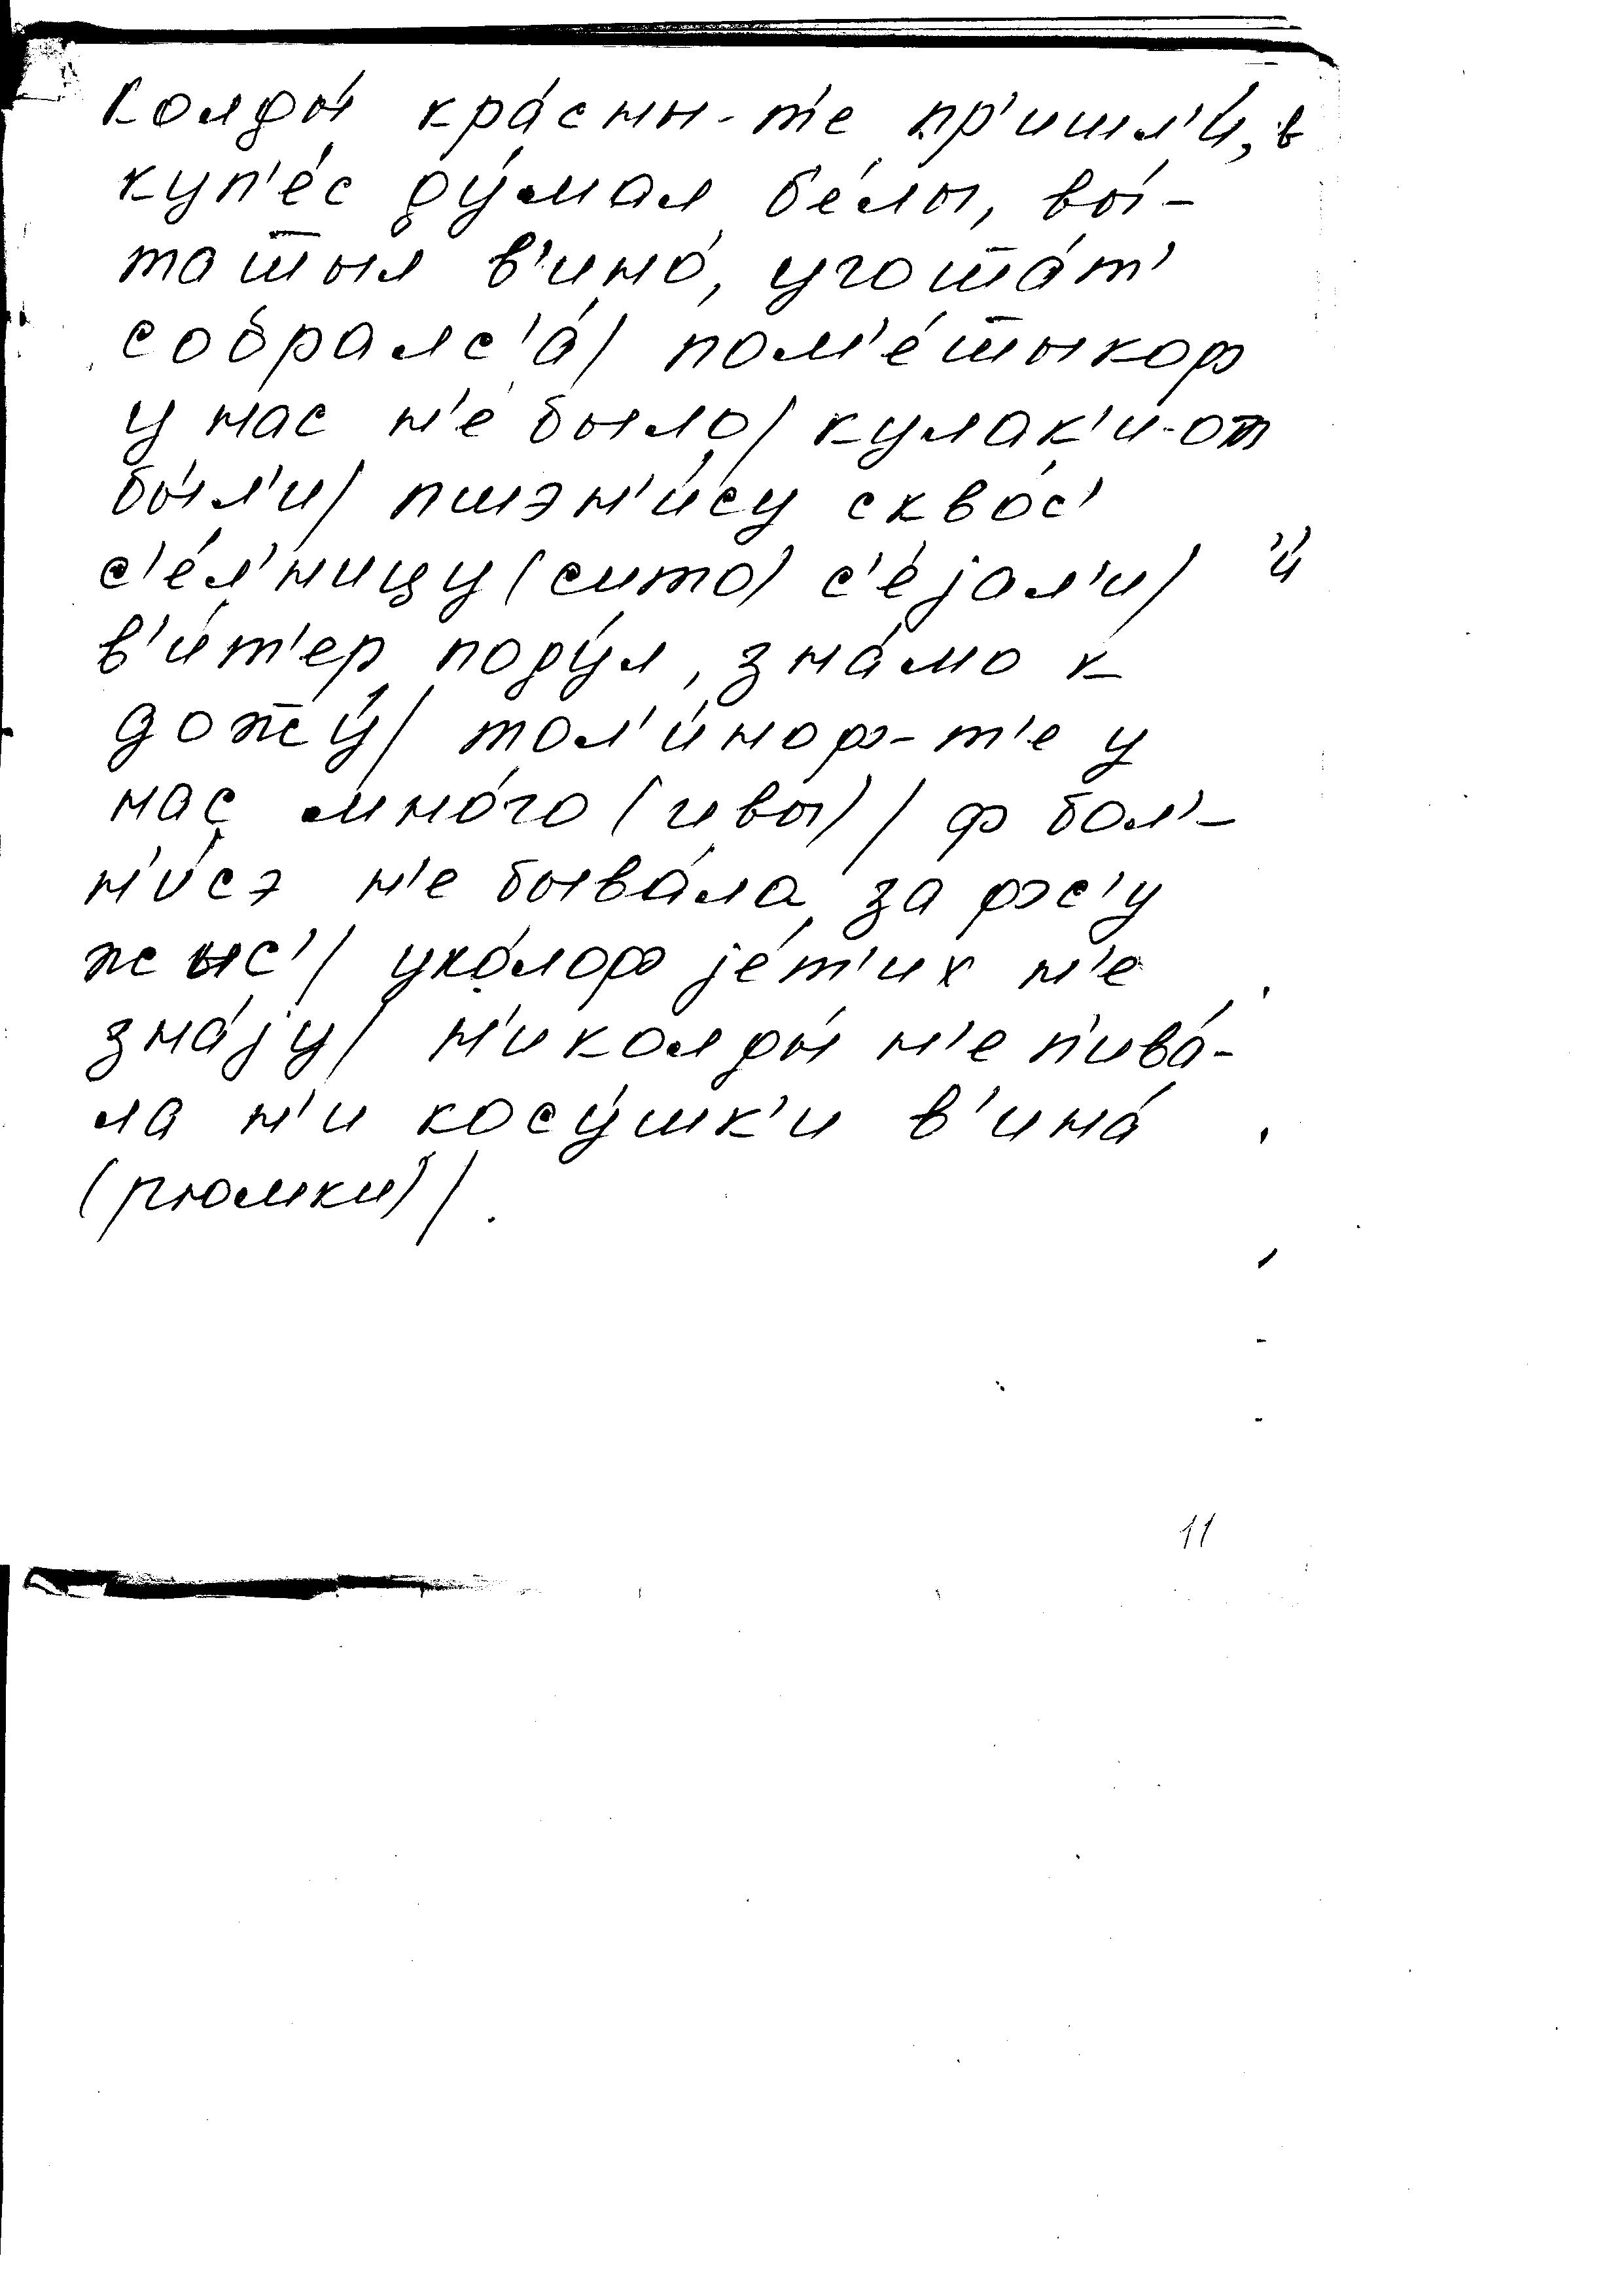 колды́ кра́сны-т'е пр'ишл'и́, в
куп'е́с ду́мал б'е́лы, вы́-
таш̅ыл в'ино́, угош̅а́т'
собралс'а́/ пом'е́ш̅ыкоф
у нас н'е было/ кулак'и́-от
бы́л'и/ пшэн'и́су сквос'
с'е́л'ницу (сито) с'е́јал'и/ 'и́
в'и́т'ер поду́л, зна́мо к
дож̅у́/ тол'и́ноф-т'е у
нас мно́го (ивы)/ ф бол'-
н'и́сэ н'е быва́ла за фс'у
жыс'/ уко́лоф је́т'их н'е
зна́ју/ н'иколды́ н'е п'ива́-
ла н'и косу́шк'и в'ина́
(рюмки)/.
11